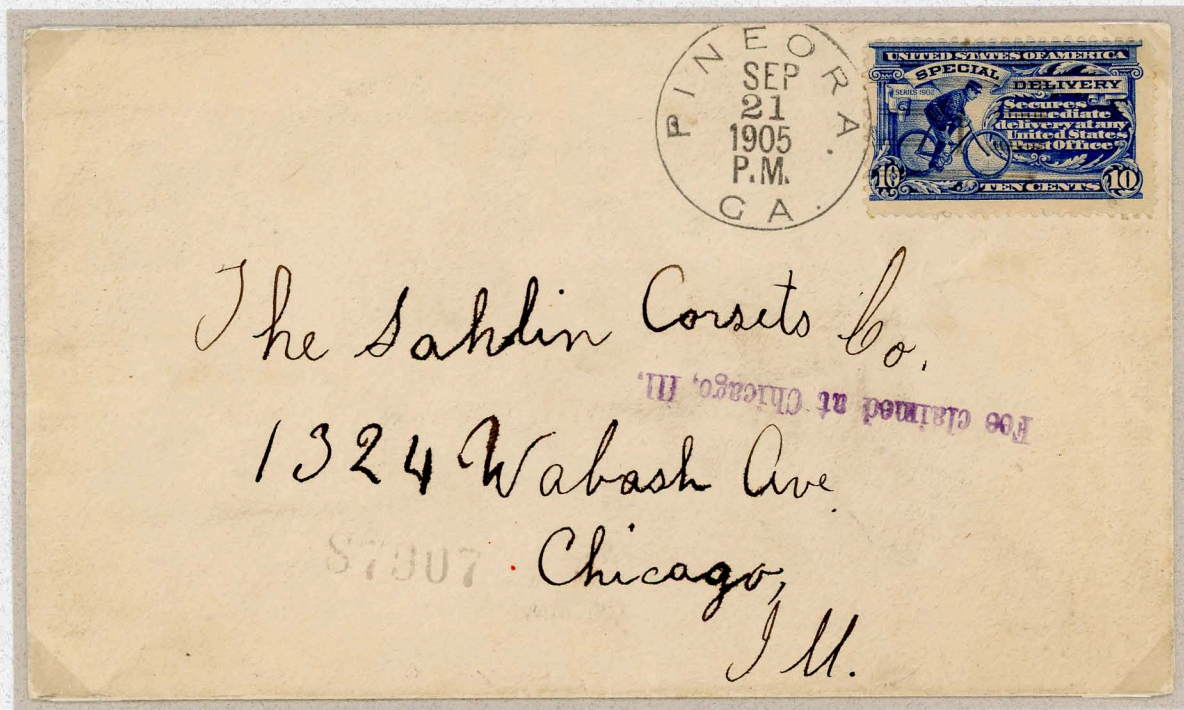 PINEORA.
SEP
21
1905
P.M.
GA.
UNITED STATES OF AMERICA
SPECIAL
DELIVERY
SERIES 1902
Secures
immediate
delivery at any
United States
Post Office
10
TEN CENTS
10
The Sahlin Corsets Co.
Fee claimed at Chicago, Ill.
1324 Wabash Ave
Chicago,
Ill.